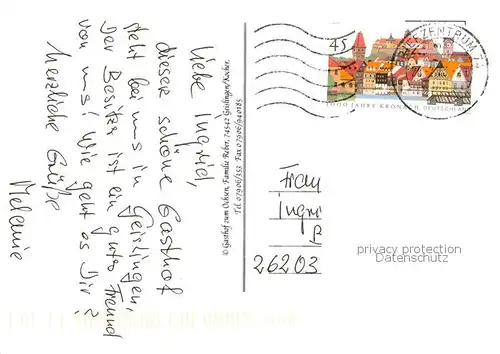 Liebe Ingrid,
dieser schöne Gasthof
steht bei uns in Geislingen.
Der Besitzer ist ein guter Freund
von uns! Wie geht es Dir?
Herzliche Grüße
Melanie
© Gasthof zum Ochsen, Familie Reber, 74542 Geislingen/Kocher,
Tel. 07906/353 Fax 07906/940185
45
BRIEFZENTRUM 74
1000 JAHRE KRONACH DEUTSCHLAND
Frau
Ingri
26203
privacy protection
Datenschutz